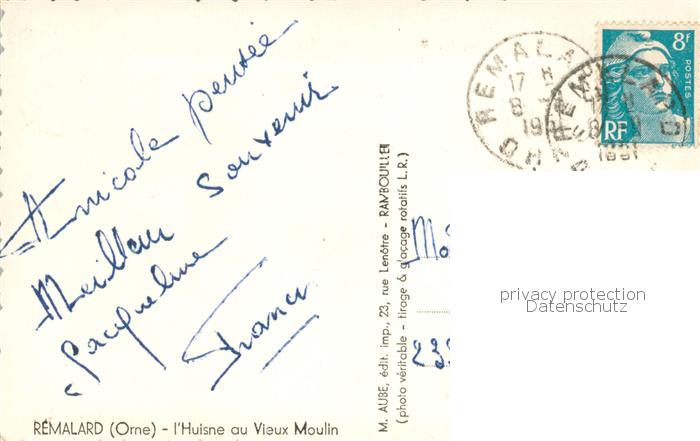 Amicale pensée
Meilleur souvenir
Jacqueline
RÉMALARD (Orne) - l'Huisne au Vieux Moulin
M. AUBE, édit. imp., 23, rue Lenôtre - RAMBOUILLET
(photo véritable - tirage & glaçage rotatifs L.R.)
REMALARD
17 H
8
19
ORNE
REMALARD
1951
8f
POSTES
RF
privacy protection
Datenschutz